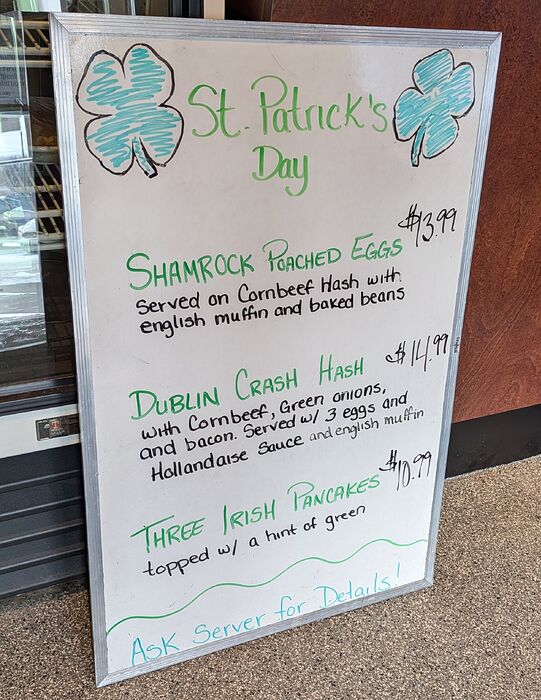 St. Patrick's
Day
$13.99
SHAMROCK POACHED EGGS
Served on Cornbeef Hash with
english muffin and baked beans
$14.99
DUBLIN CRASH HASH
with Cornbeef, Green onions,
and bacon. Served w/ 3 eggs and
Hollandaise Sauce and english muffin
$10.99
THREE IRISH PANCAKES
topped w/ a hint of green
Ask Server for Details!